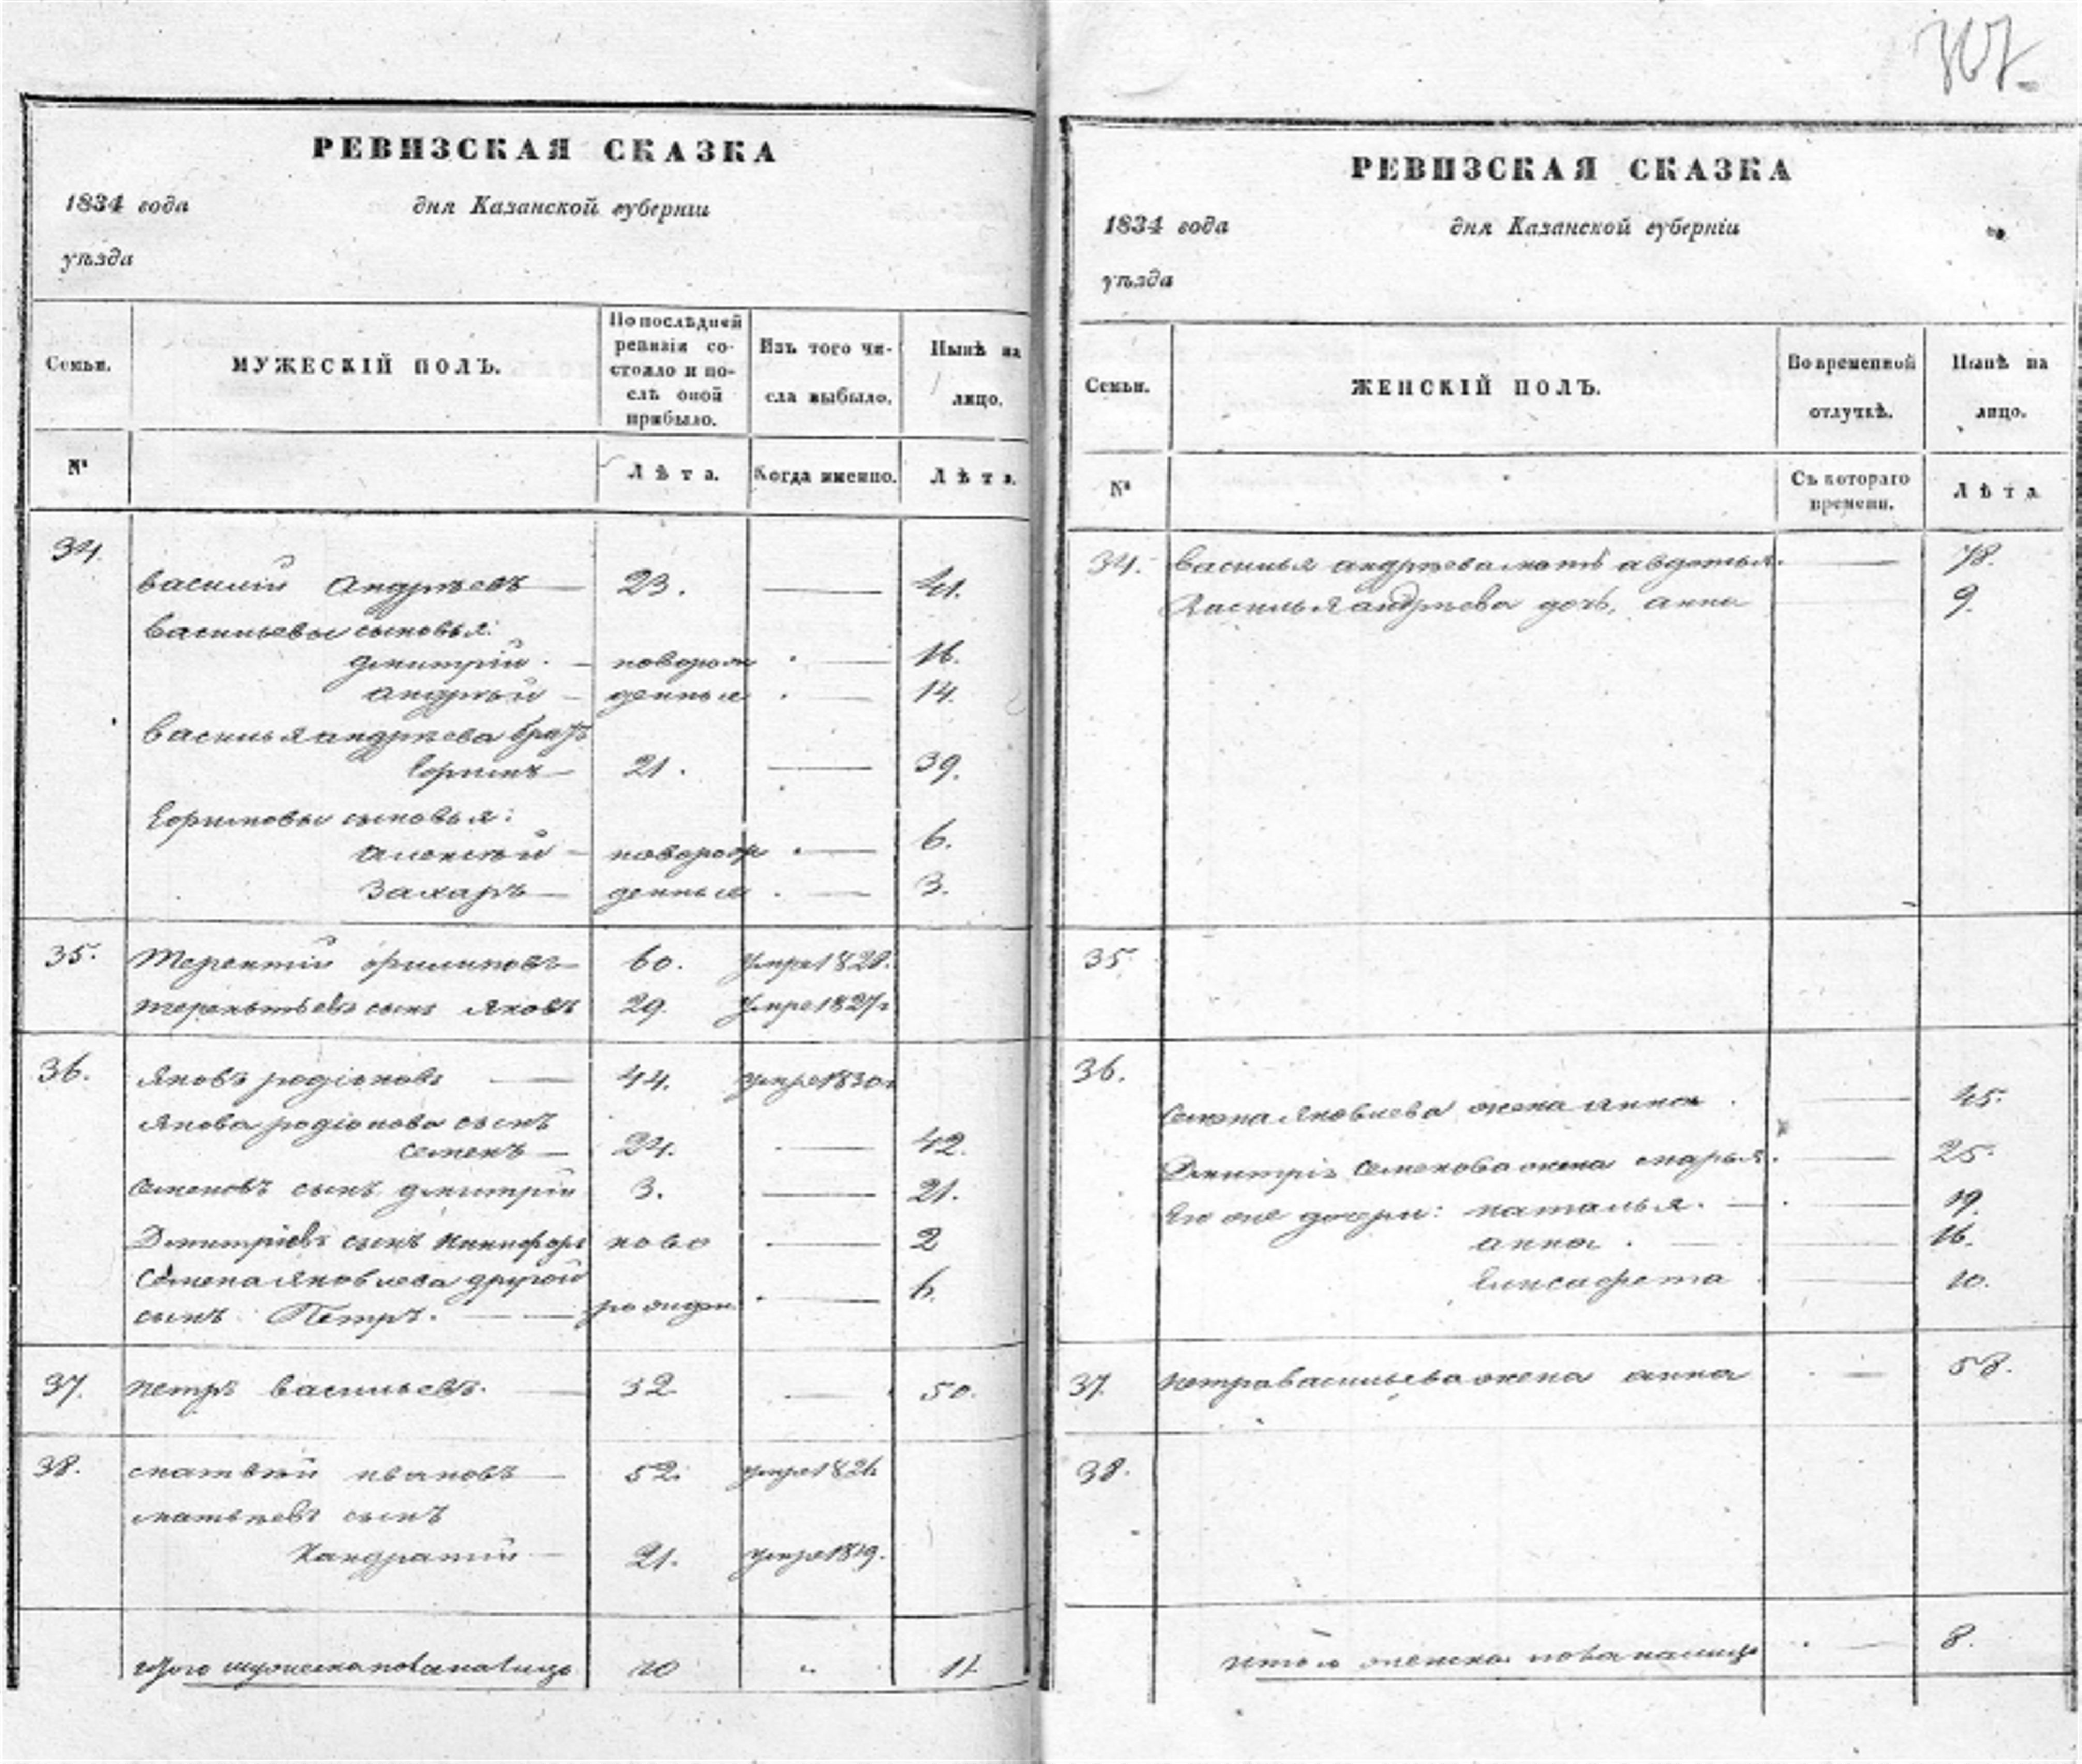 307.
РЕВИЗСКАЯ СКАЗКА
1834 года дня Казанской губерніи
уѣзда
Семьи. МУЖЕСКІЙ ПОЛЪ. По послѣдней ревизіи состояло и послѣ оной прибыло. Изъ того числа выбыло. Нынѣ на лицо.
№ Лѣта. Когда именно. Лѣта.
34. Василій Андрѣевъ — 23. — 41.
Васильевы сыновья:
Дмитрій — новорож — 16.
Андрѣй — денныя — 14.
Василья Андрѣева братъ
Ефимъ — 21. — 39.
Ефимовы сыновья:
Алексѣй — новорож — 6.
Захаръ — денныя — 3.
35. Терентій Филиповъ — 60. умре 1828.
Терентьевъ сынъ Яковъ 29. умре 1827г
36. Яковъ Родіоновъ — 44. умре 1830г
Якова Родіонова сынъ
Семенъ — 24. — 42.
Семеновъ сынъ Дмитрій 3. — 21.
Дмитріевъ сынъ Никифоръ ново — 2
Семена Яковлева другой
сынъ Петръ. — рожден. — 6.
37. Петръ Васильевъ. — 32 — 50.
38. Матвѣй Ивановъ — 52. умре 1826
Матвѣевъ сынъ
Кандратій — 21. умре 1819.
Итого мужеска пола на лицо 10 „ 11
РЕВИЗСКАЯ СКАЗКА
1834 года дня Казанской губерніи
уѣзда
Семьи. ЖЕНСКІЙ ПОЛЪ. Во временной отлучкѣ. Нынѣ на лицо.
№ Съ котораго времени. Лѣта
34. Василья Андрѣева мать Авдотья. — 78.
Василья Андрѣева дочь, Анна 9.
35
36.
Семена Яковлева жена Анна — 45.
Дмитрія Семенова жена Марья. — 25.
Его же дочери: Наталья. — 19.
Анна. — 16.
Елисафета — 10.
37. Петра Васильева жена Анна — 58.
38.
Итого женска пола на лицо — 8.